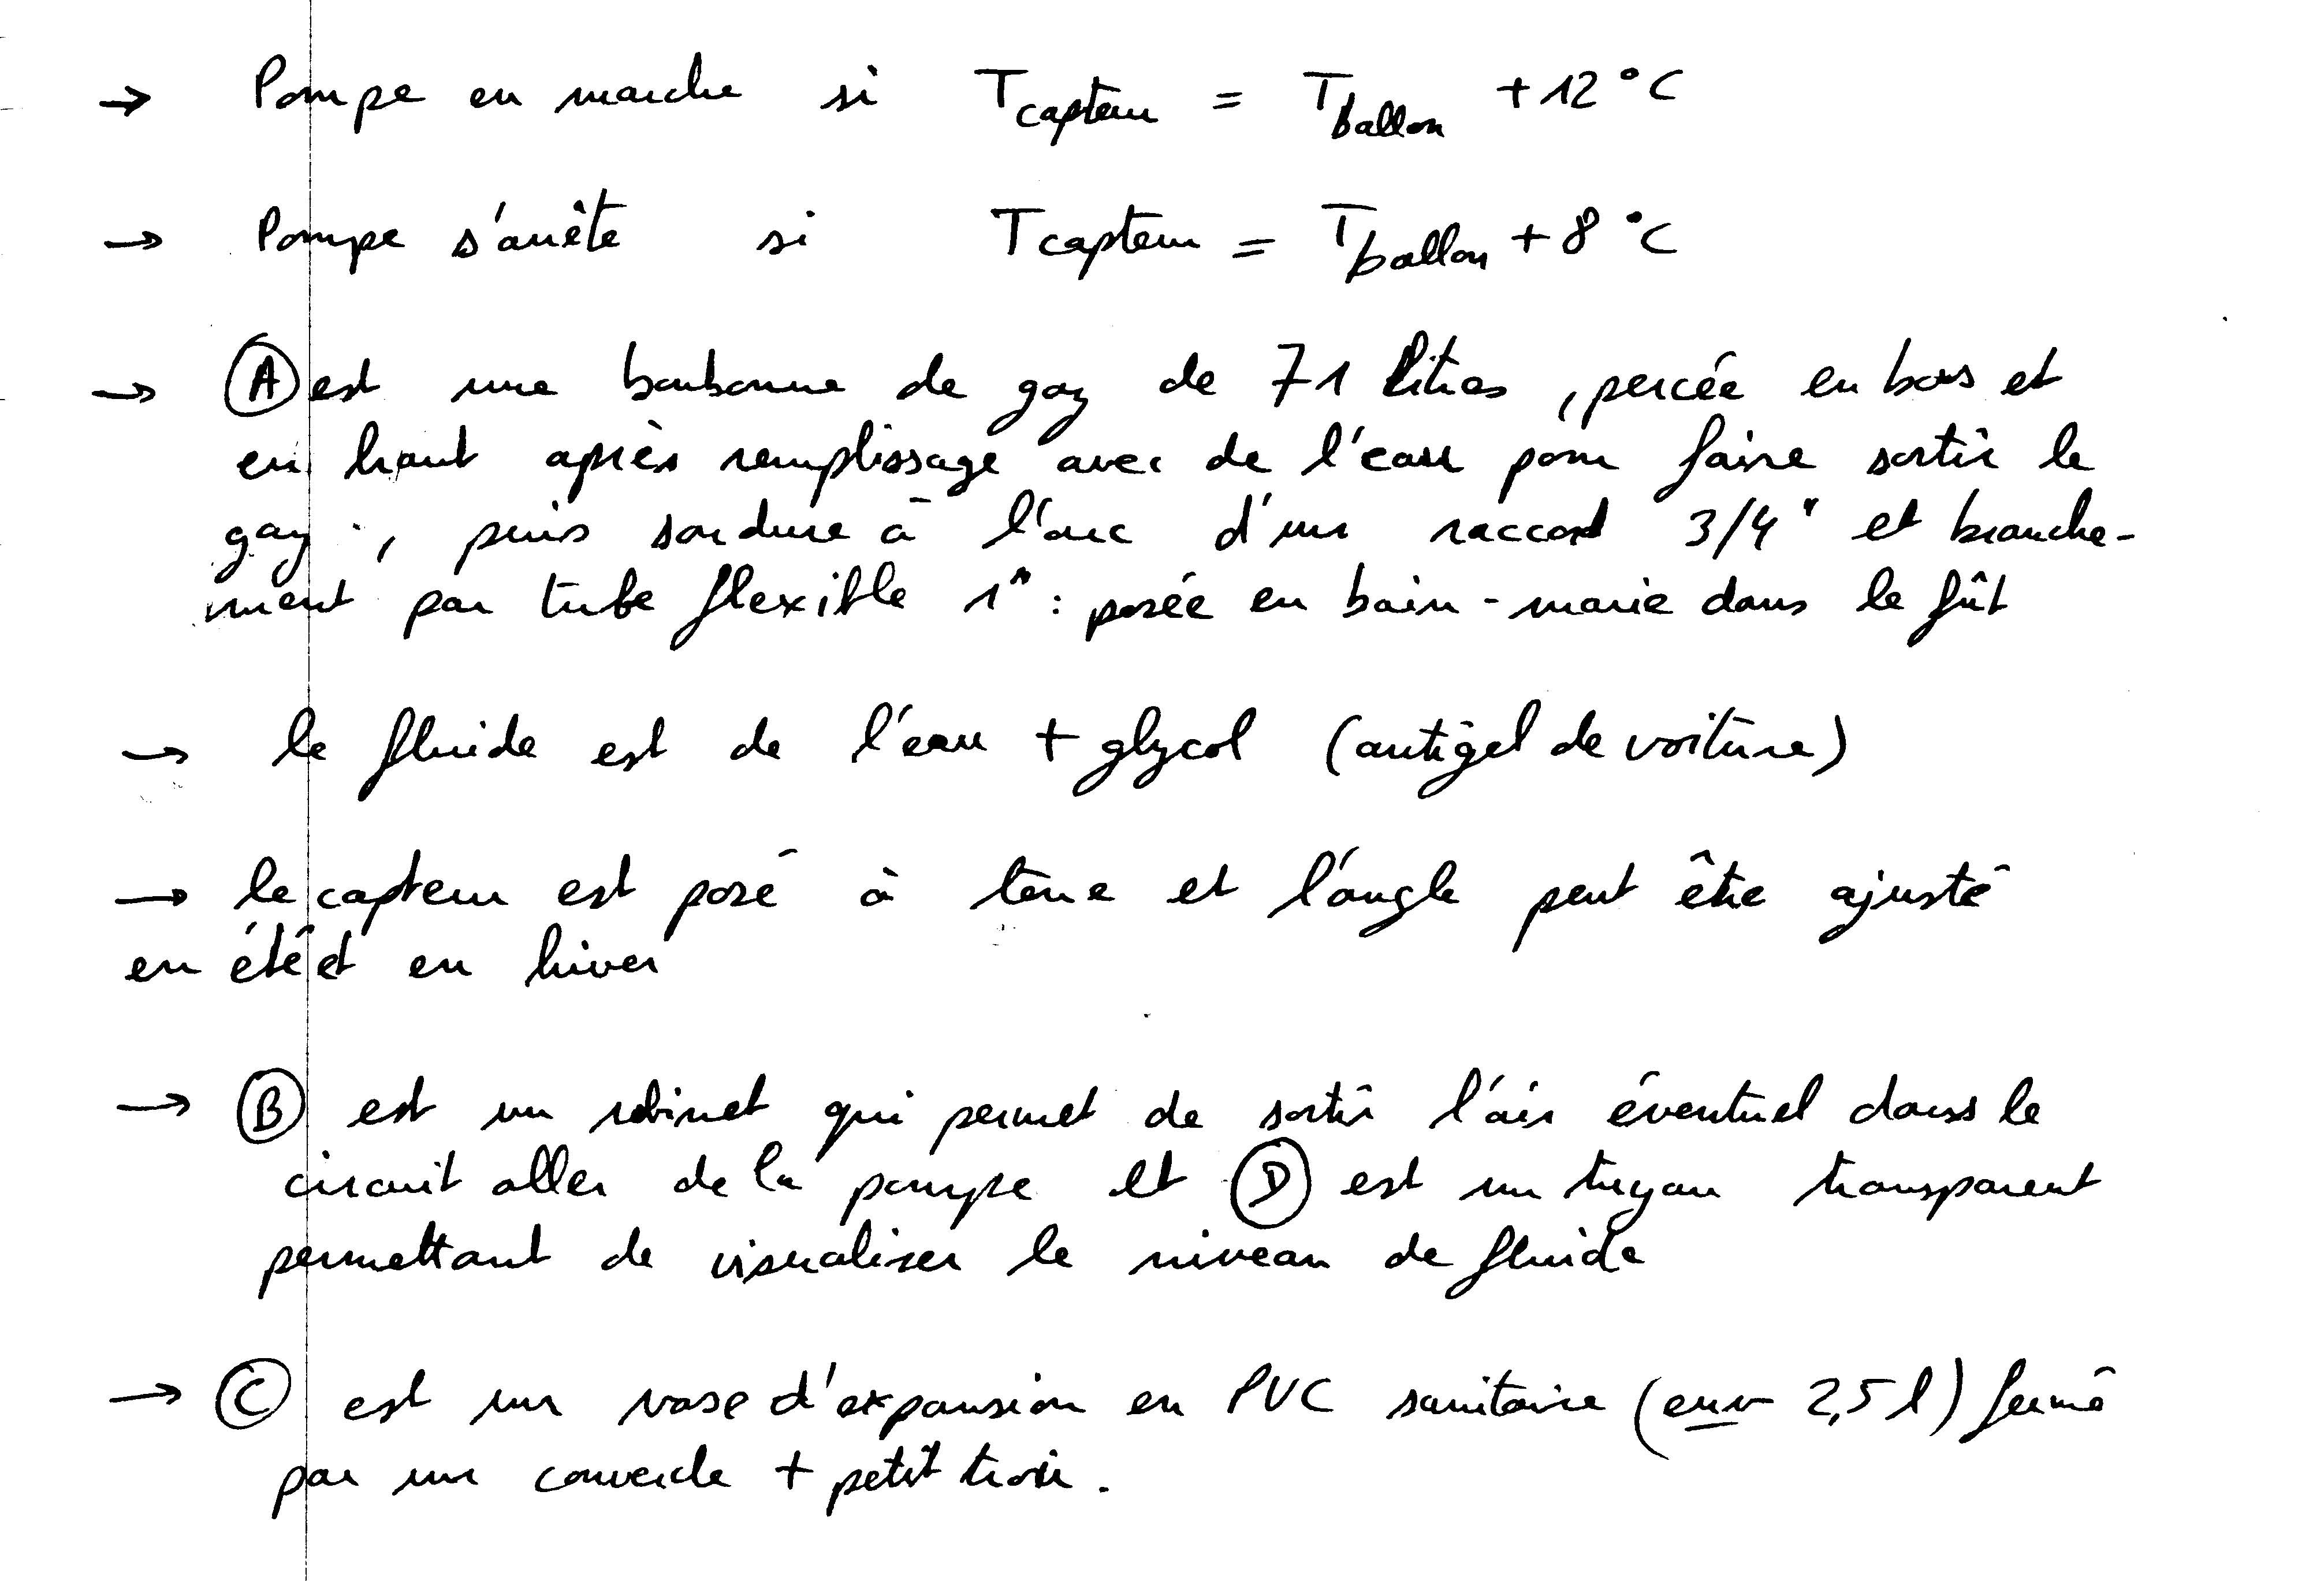 → Pompe en marche si Tcapteur = Tballon + 12 °C
→ Pompe s'arrête si Tcapteur = Tballon + 8 °C
→ Ⓐ est une bonbonne de gaz de 71 litres, percée en bas et
en haut après remplissage avec de l'eau pour faire sortir le
gaz, puis soudure à l'arc d'un raccord 3/4" et branche-
ment par tube flexible 1" : posée en bain-marie dans le fût
→ le fluide est de l'eau + glycol (antigel de voiture)
→ le capteur est posé à terre et l'angle peut être ajusté
en été et en hiver
→ Ⓑ est un robinet qui permet de sortir l'air éventuel dans le
circuit aller de la pompe et Ⓓ est un tuyau transparent
permettant de visualiser le niveau de fluide
→ Ⓒ est un vase d'expansion en PVC sanitaire (env 2,5 l) fermé
par un couvercle + petit trou.